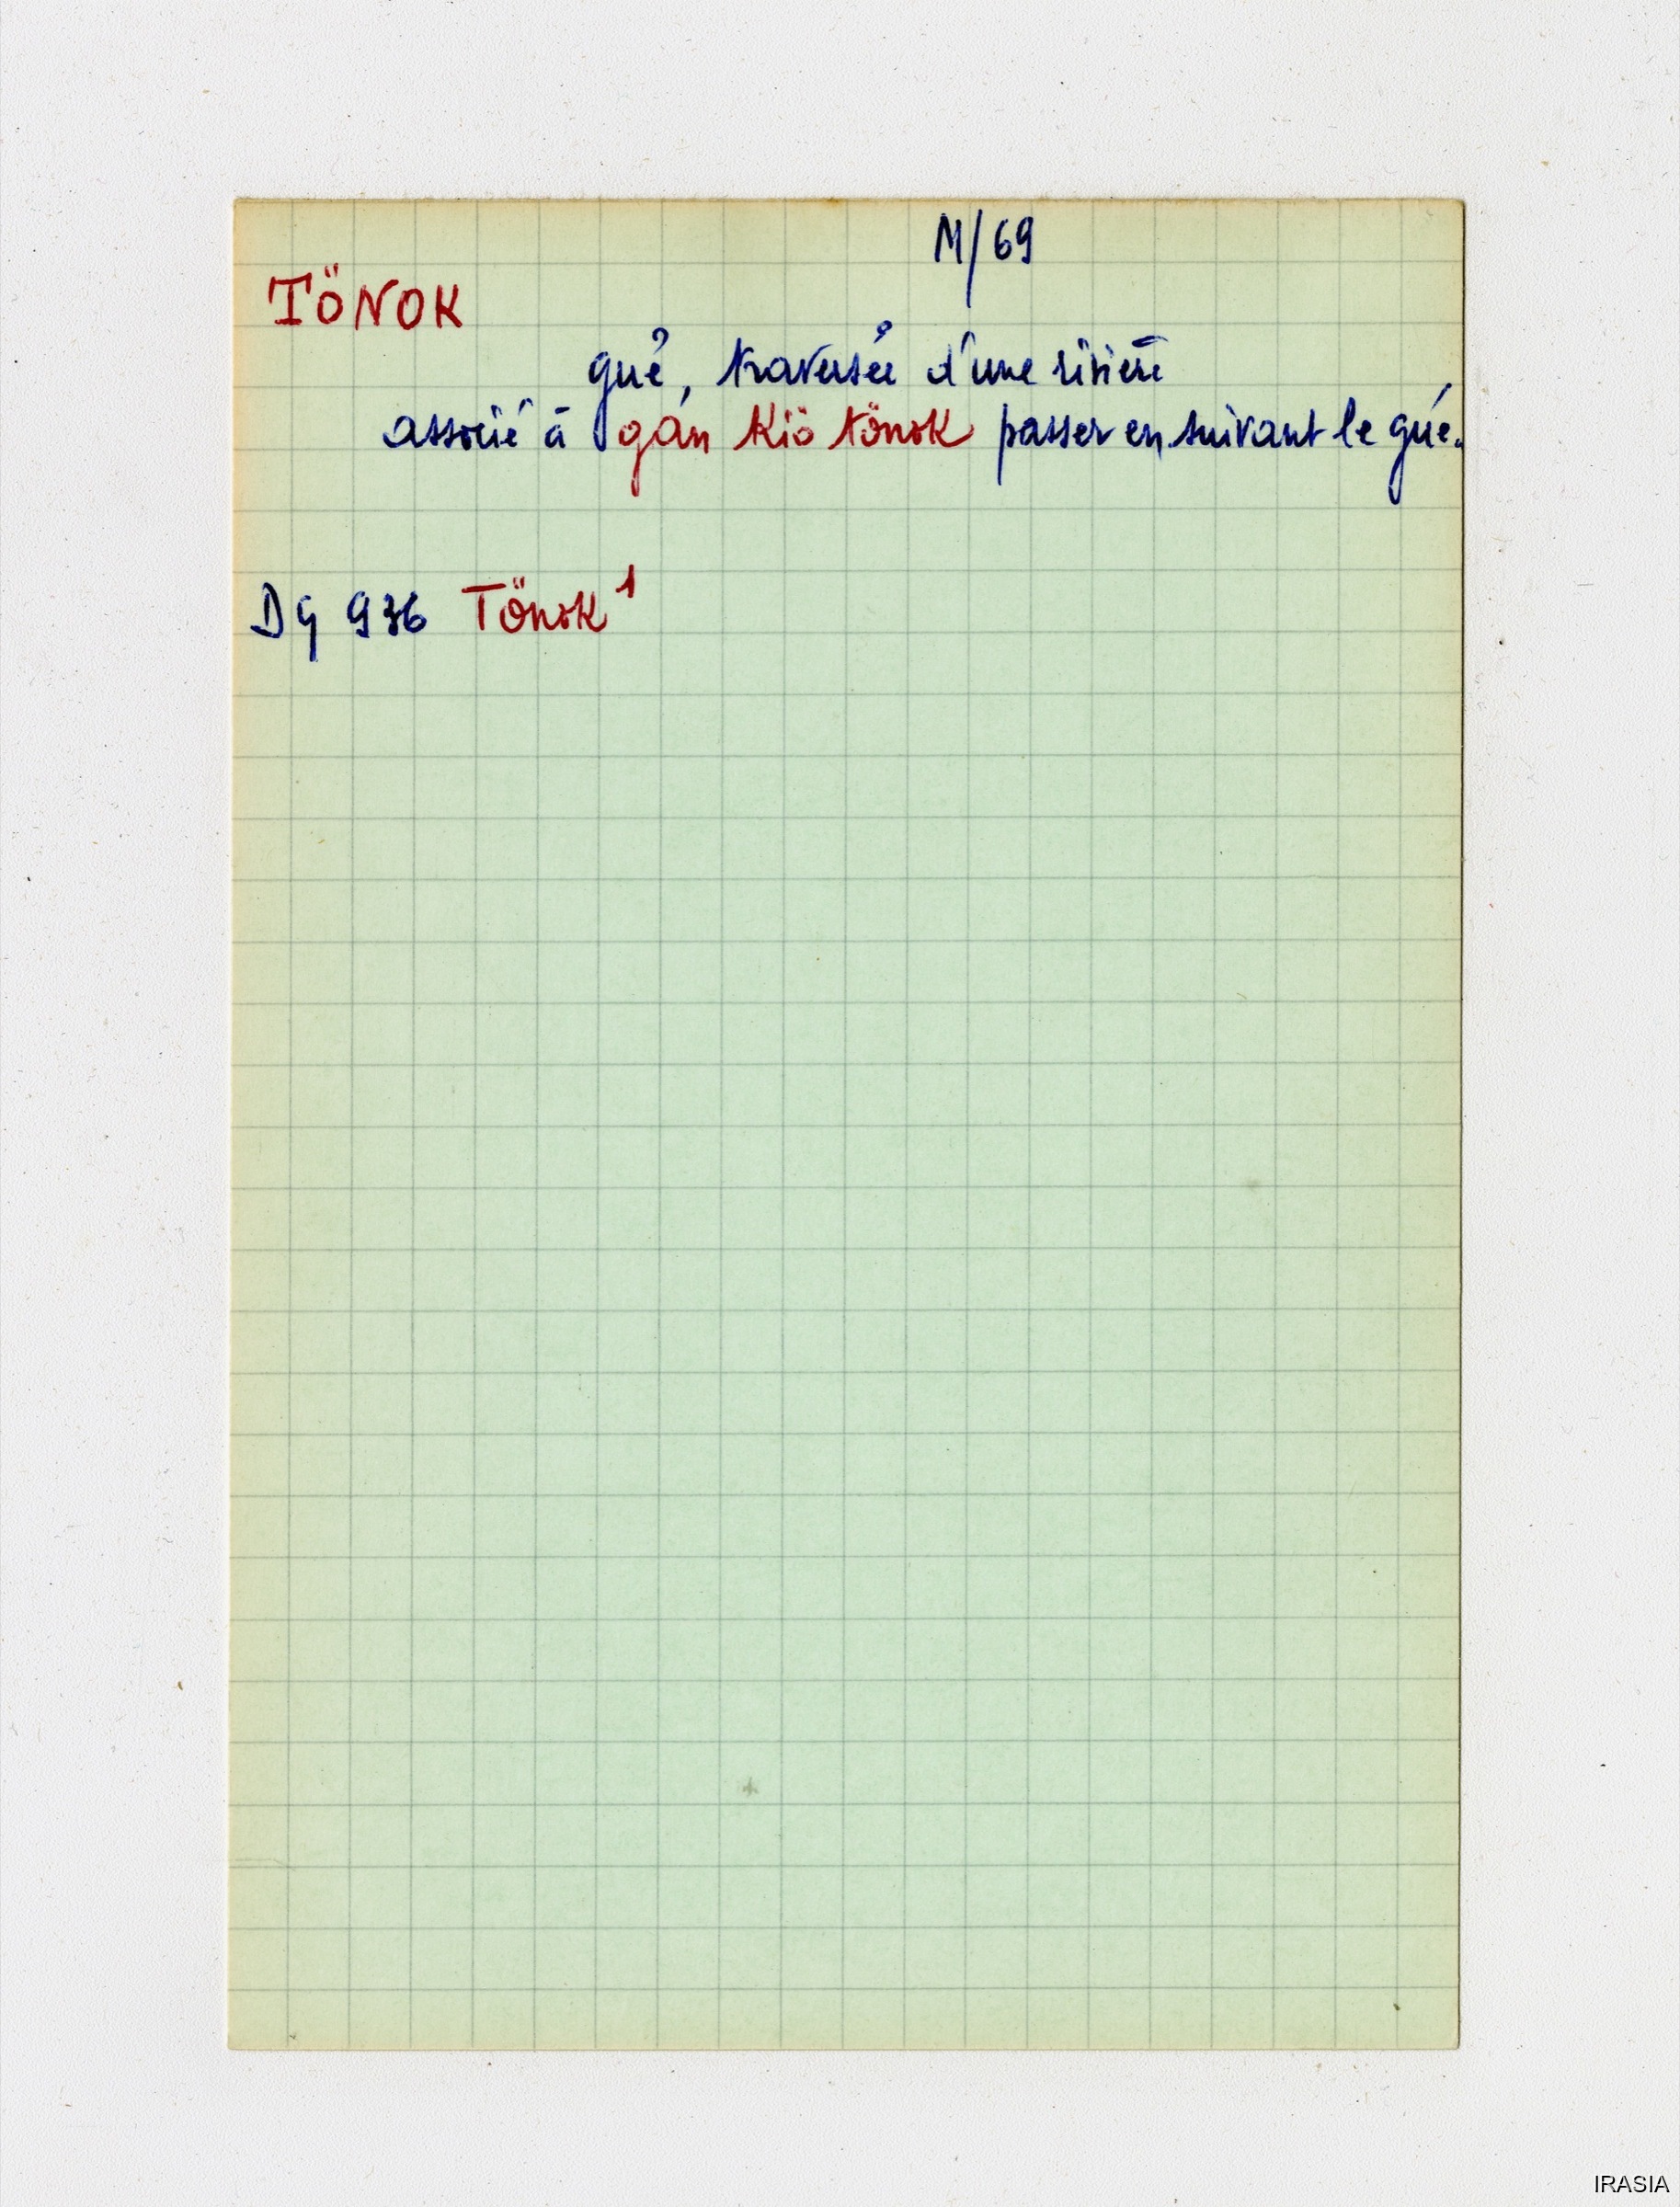 M/69
TÖNOK
gué, traversée d'une rivière
associé à gán kiö tönok passer en suivant le gué.
DG 936 Tönok¹
IRASIA